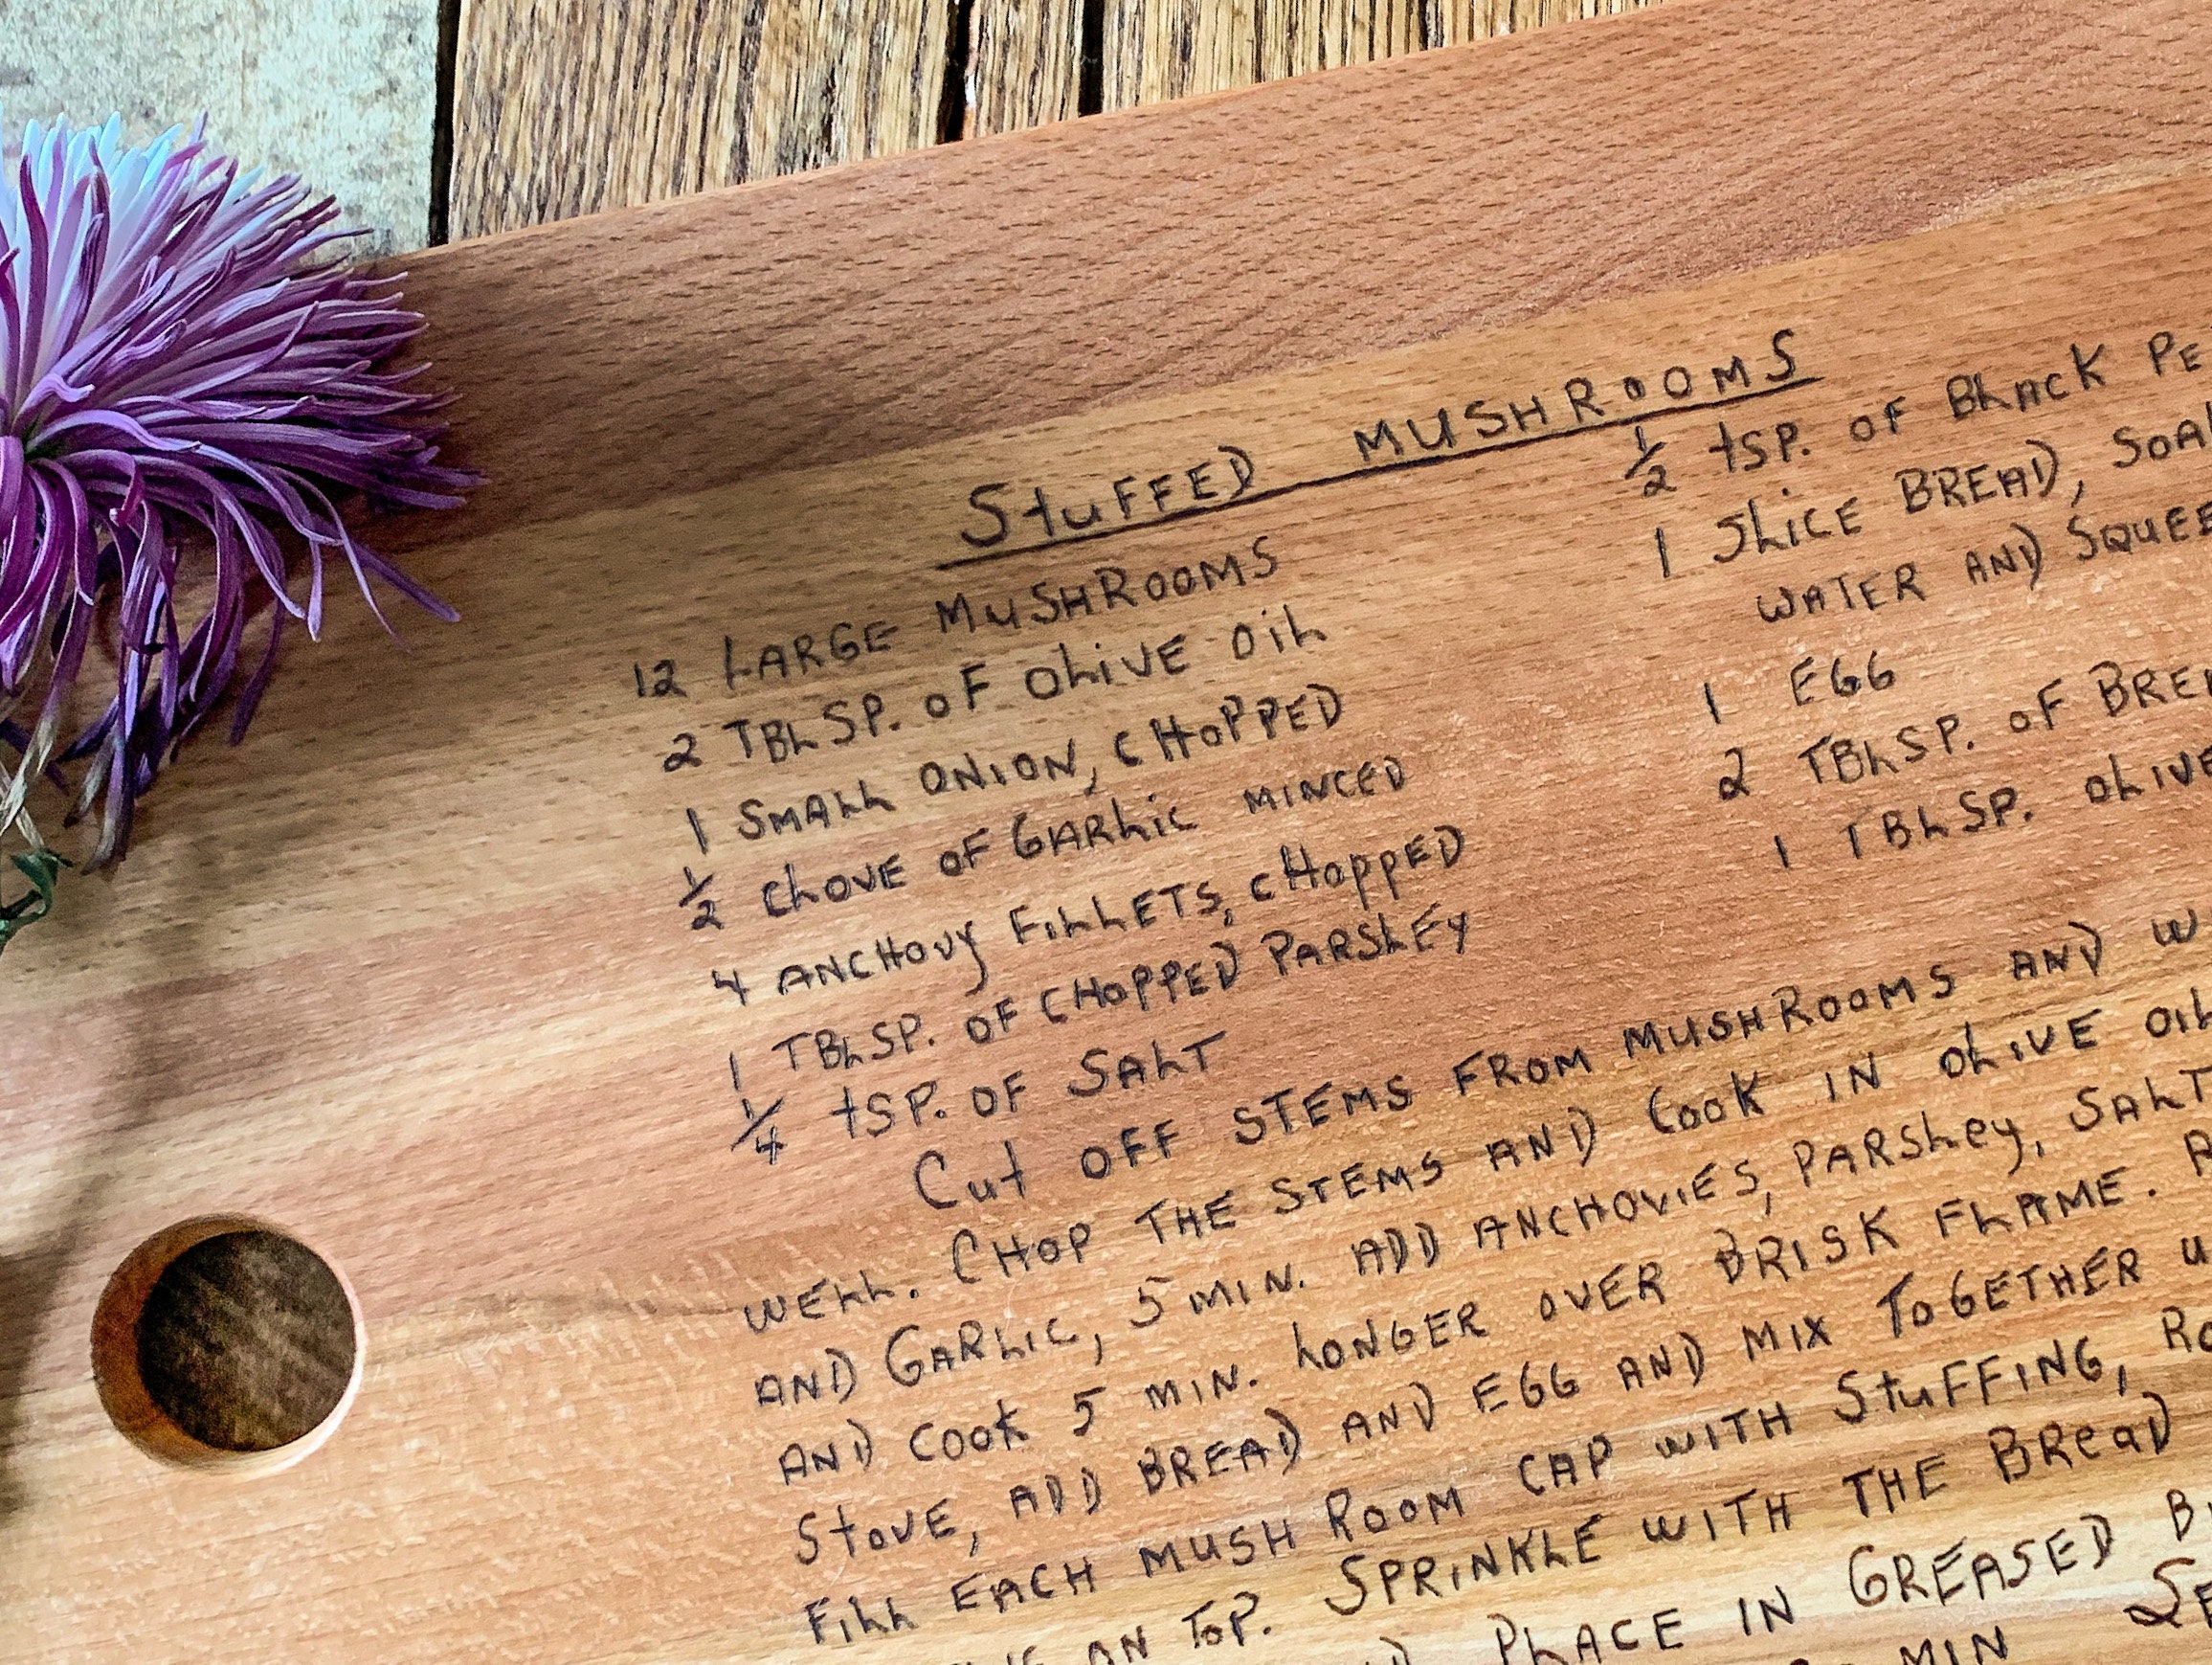 Stuffed Mushrooms
12 Large Mushrooms
2 Tblsp. of Olive Oil
1 Small Onion, Chopped
1/2 Clove of Garlic Minced
4 Anchovy Fillets, Chopped
1 Tblsp. of Chopped Parsley
1/4 tsp. of Salt
1/2 tsp. of Black Pe
1 Slice Bread, Soa
Water and Squee
1 Egg
2 Tblsp. of Bre
1 Tblsp. Olive
Cut off Stems from Mushrooms and W
Well. Chop the Stems and Cook in Olive Oil
and Garlic, 5 Min. Add Anchovies, Parsley, Salt
and Cook 5 Min. Longer over Brisk Flame.
Stove, Add Bread and Egg and Mix Together u
Fill Each Mush Room Cap with Stuffing, Ro
on Top. Sprinkle with the Bread
Place in Greased B
Min Se